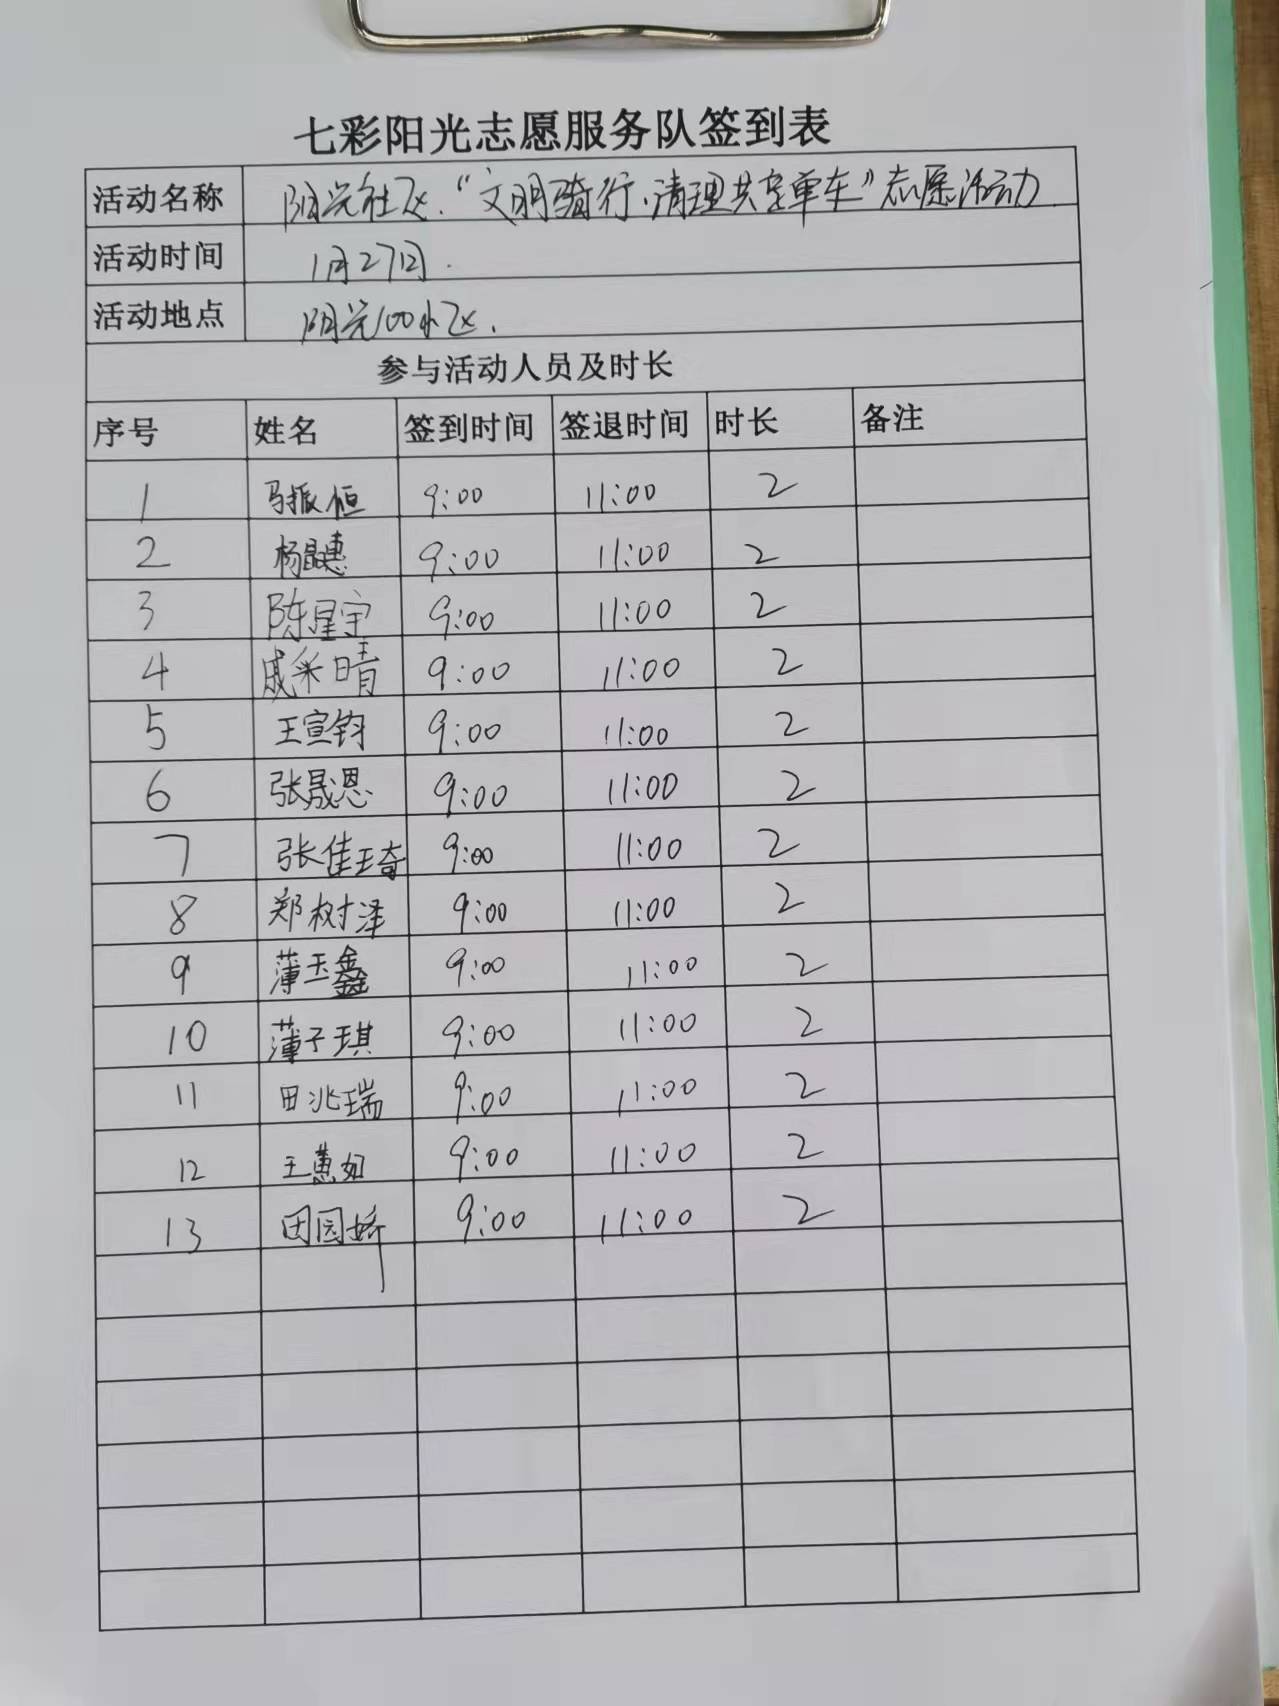 七彩阳光志愿服务队签到表
活动名称 阳光社区."文明骑行,清理共享单车"志愿活动.
活动时间 1月27日.
活动地点 阳光100小区.
参与活动人员及时长
序号 姓名 签到时间 签退时间 时长 备注
1 马振恒 9:00 11:00 2
2 杨晶惠 9:00 11:00 2
3 陈星宇 9:00 11:00 2
4 戚采晴 9:00 11:00 2
5 王宣钧 9:00 11:00 2
6 张晟恩 9:00 11:00 2
7 张佳琦 9:00 11:00 2
8 郑树泽 9:00 11:00 2
9 薄玉鑫 9:00 11:00 2
10 薄子琪 9:00 11:00 2
11 田兆瑞 9:00 11:00 2
12 王蕙如 9:00 11:00 2
13 田园娇 9:00 11:00 2